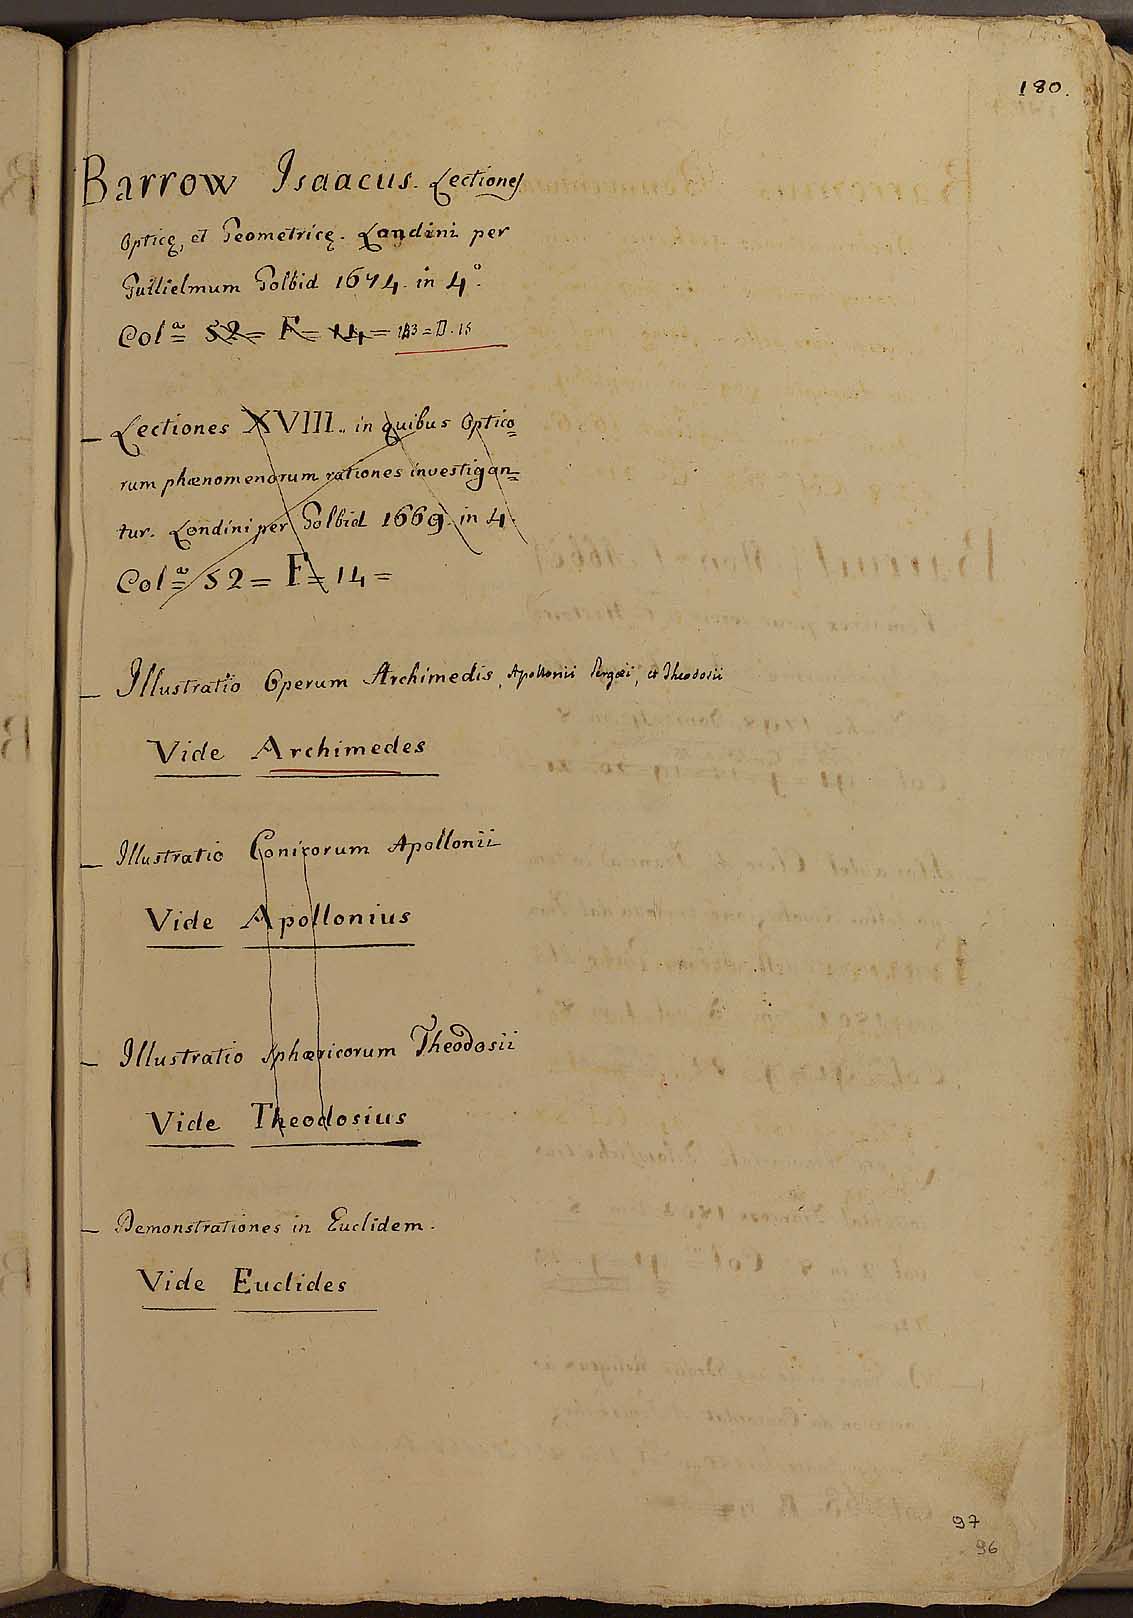 180.
Barrow Isaacus. Lectiones
Opticę, et Geometricę. Londini per
Gulielmum Golbid 1674. in 4°.
Colª= 52= F= 14= 143=D.15
– Lectiones XVIII.. in quibus Optico=
rum phænomenorum rationes investigan=
tur. Londini per Golbid 1669. in 4.
Colª= 52= F= 14=
– Illustratio Operum Archimedis, Apollonii Pergæi, et Theodosii
Vide Archimedes
– Illustratio Conicorum Apollonii
Vide Apollonius
– Illustratio Sphæricorum Theodosii
Vide Theodosius
– Demonstrationes in Euclidem.
Vide Euclides
97
96